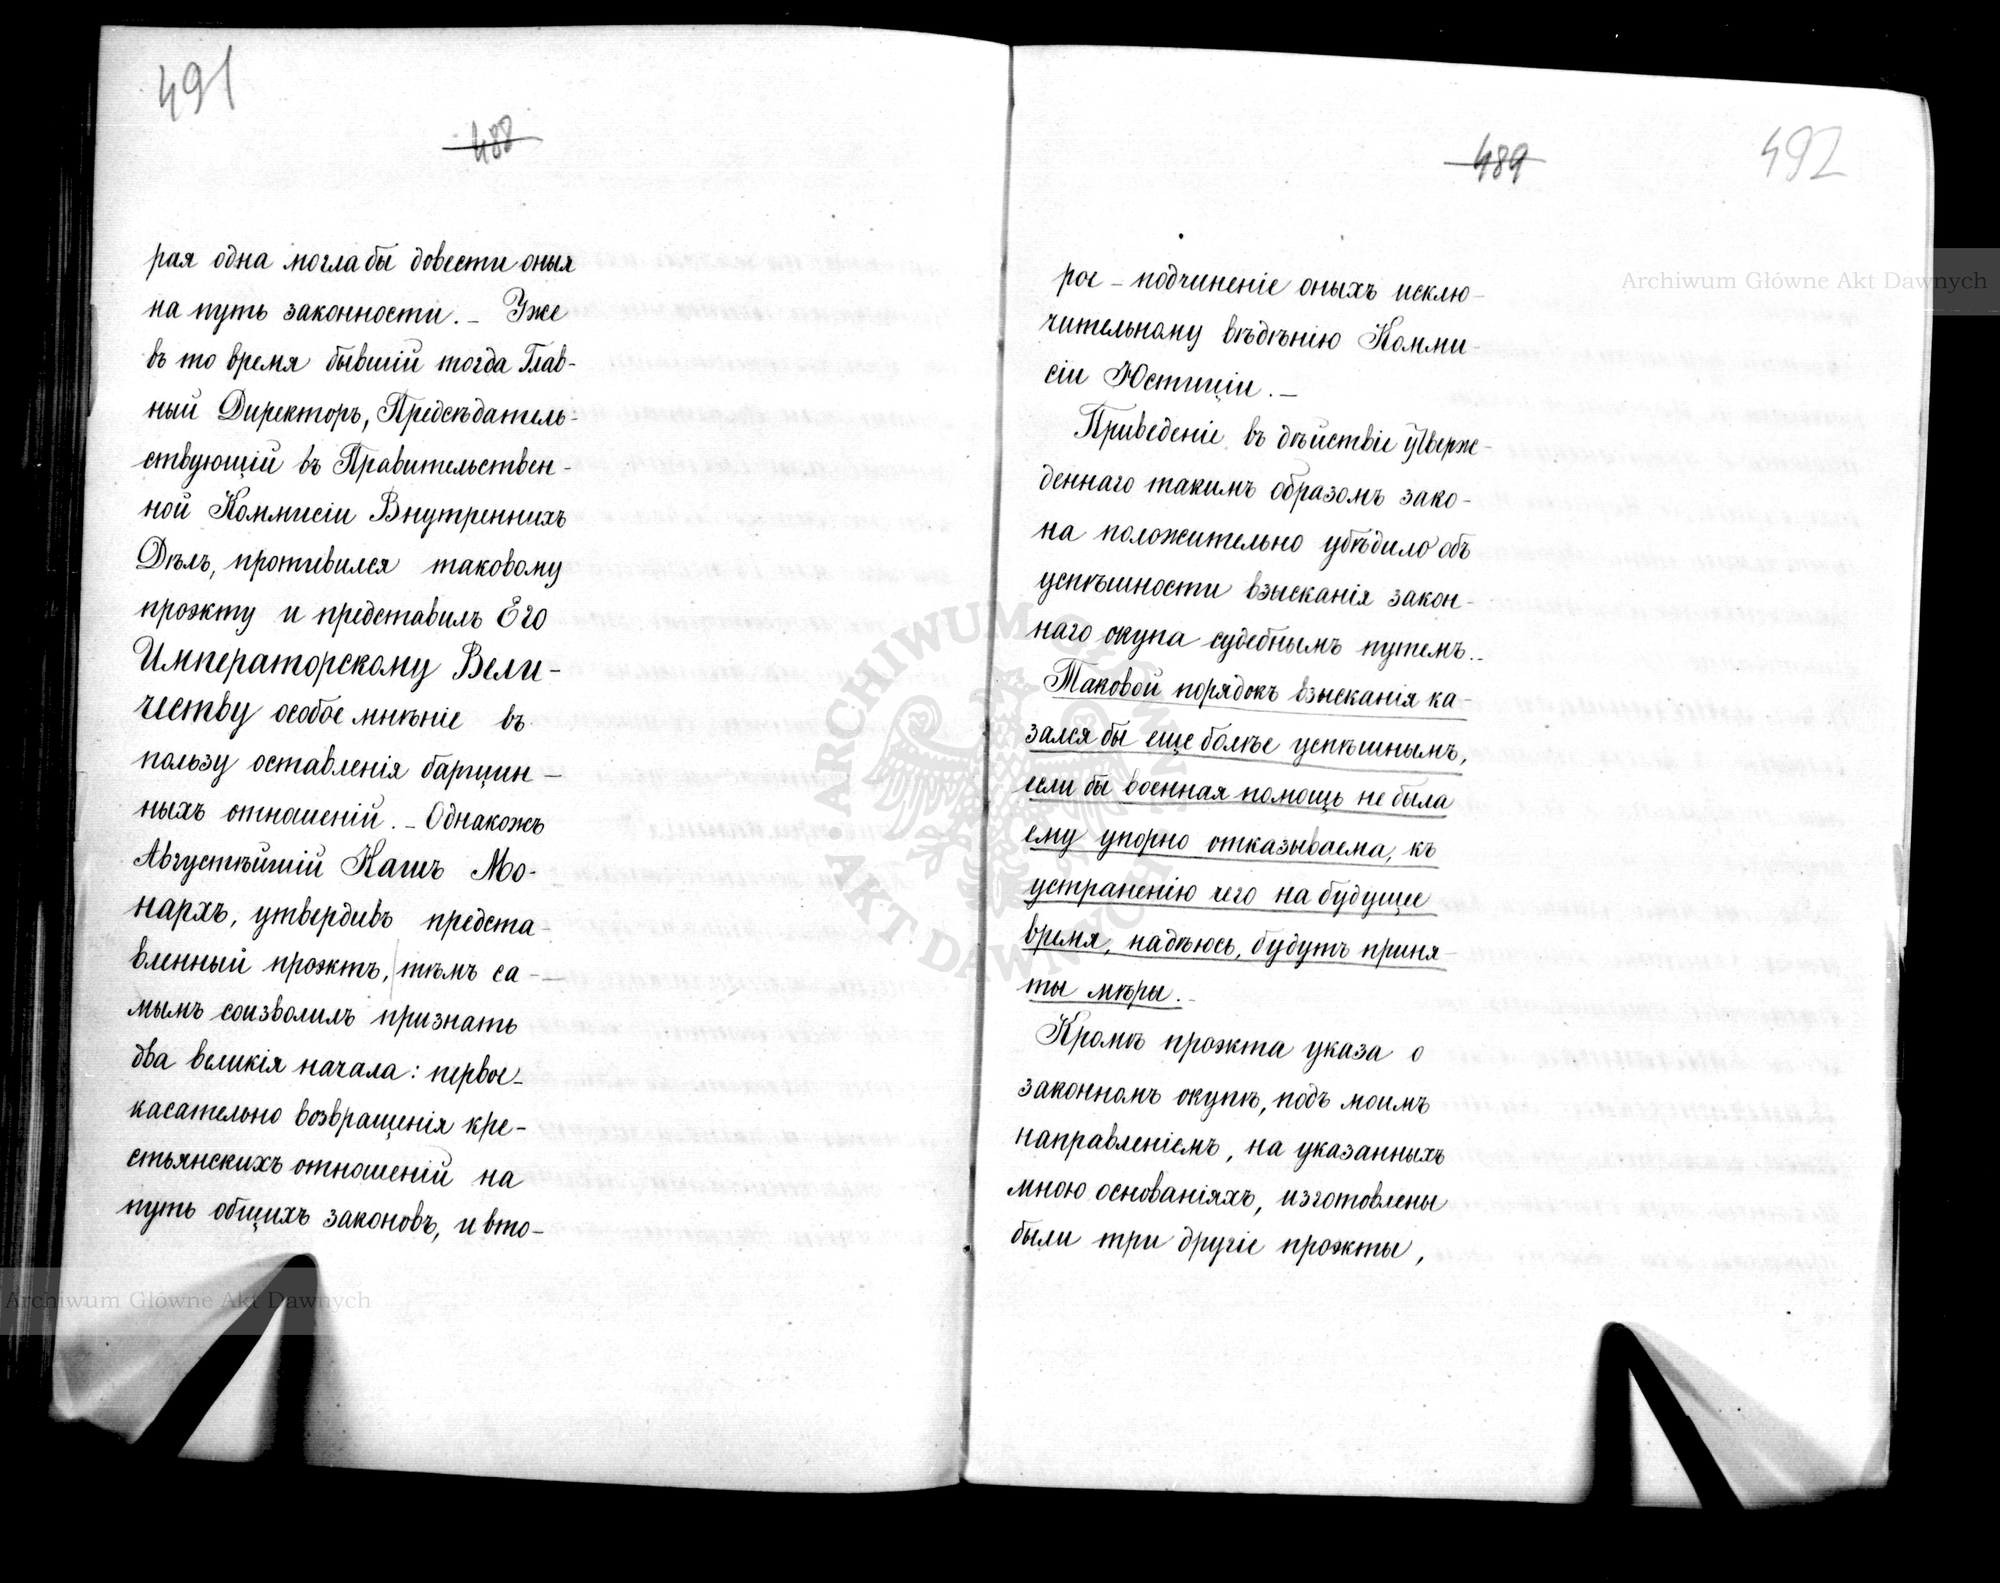 491
488
рая одна могла бы довести оныя
на путь законности. – Уже
въ то время бывшій тогда Глав-
ный Директоръ, Предсѣдатель-
ствующій въ Правительствен-
ной Коммисіи Внутреннихъ
Дѣлъ, противился таковому
проэкту и представилъ Его
Императорскому Вели-
честву особое мнѣніе въ
пользу оставленія барщин-
ныхъ отношеній. – Однакожъ
Августѣйшій Нашъ Мо-
нархъ, утвердивъ предста-
вленный проэктъ, тѣмъ са-
мымъ соизволилъ признать
два великія начала: первое –
касательно возвращенія кре-
стьянскихъ отношеній на
путь общихъ законовъ, и вто-
489
492
рое – подчиненіе оныхъ исклю-
чительному вѣдѣнію Комми-
сіи Юстиціи. –
Приведеніе въ дѣйствіе утверж-
деннаго такимъ образомъ зако-
на положительно убѣдило объ
успѣшности взысканія закон-
наго окупа судебнымъ путемъ. –
Таковой порядокъ взысканія ка-
зался бы еще болѣе успѣшнымъ,
если бы военная помощь не была
ему упорно отказываема, къ
устраненію чего на будущее
время, надѣюсь, будутъ приня-
ты мѣры. –
Кромѣ проэкта указа о
законномъ окупѣ, подъ моимъ
направленіемъ, на указанныхъ
мною основаніяхъ, изготовлены
были три другіе проэкты,
Archiwum Główne Akt Dawnych
Archiwum Główne Akt Dawnych
ARCHIWUM GŁÓWNE
AKT DAWNYCH